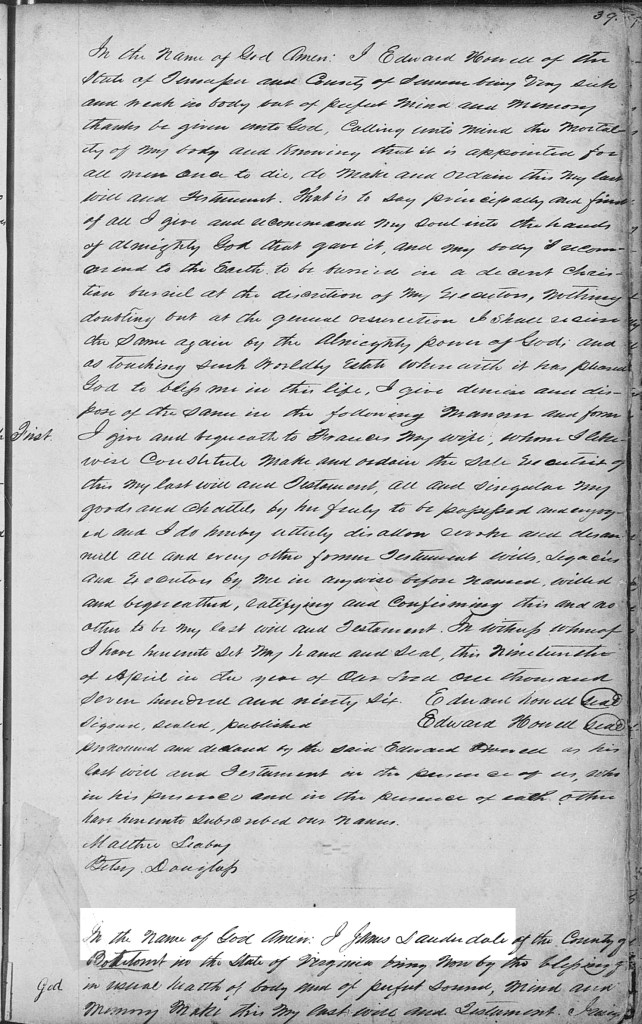 39.
In the Name of God Amen: I Edward Howell of the
State of Tennessee and County of Sumner being Very sick
and weak in body but of perfect Mind and Memory
thanks be given unto God, Calling unto Mind the Mortal-
ity of My body and Knowing that it is appointed for
all men once to die, do Make and ordain this My last
will and Testament. That is to say principally and first
of all I give and recommend My Soul into the hands
of Almighty God that gave it, and My body I recom-
mend to the Earth to be buried in a decent Chris-
tian buriel at the discretion of My Executors, Nothing
doubting but at the general resurrection I shall receive
the Same again by the Almighty power of God; and
as touching such Worldly Estate wherewith it has pleased
God to bless me in this life, I give demise and dis-
pose of the Same in the following Manner and form
First. I give and bequeath to Frances My wife, whom I like-
wise Constitute Make and ordain the Sole Executrix of
this My last will and Testament, all and Singular My
goods and Chattels by her freely to be possessed and enjoy-
ed and I do hereby utterly disallow revoke and disan-
null all and every other former Testament wills, Legacies
and Executors by Me in anywise before Named, willed
and bequeathed, ratifying and Confirming this and no
other to be My last will and Testament. In witness whereof
I have hereunto Set My hand and Seal, this Nineteenth
of April in the year of Our Lord one thousand
Seven hundred and ninety Six. Edward Howell Seal
Signed, sealed, published Edward Howell Seal
pronounced and declared by the Said Edward Howell as his
last will and Testament in the presence of us, who
in his presence and in the presence of each other
have hereunto Subscribed our Names.
Betsy Douglass
In the Name of God Amen: I James Lauderdale of the County of
Botetourt in the State of Virginia being Now by the blessing of
God in usual health of body and of perfect Sound, Mind and
Memory Make this My last will and Testament.